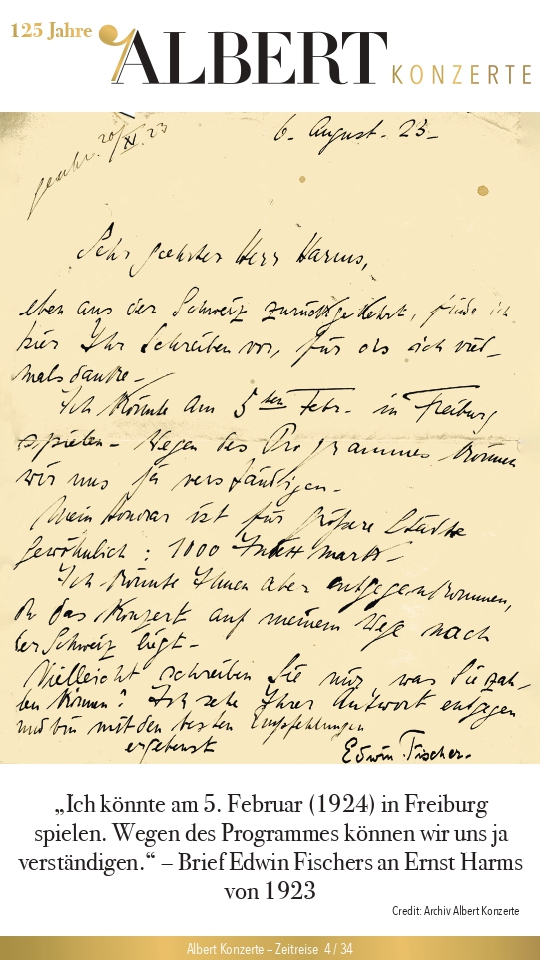 125 Jahre
ALBERT
KONZERTE
20/XI.23
6. August. 23.
Sehr geehrter Herr Harms,
eben aus der Schweiz zurückgekehrt, finde ich
hier Ihr Schreiben vor, für das ich viel-
mals danke.
Ich könnte am 5ten Febr. in Freiburg
spielen. Wegen des Programmes können
wir uns ja verständigen.
Mein Honorar ist für größere Städte
gewöhnlich: 1000 mark.
Ich könnte Ihnen aber entgegenkommen,
da das Konzert auf meinem Wege nach
der Schweiz liegt.
Vielleicht schreiben Sie mir was Sie zah-
len können? Ich sehe Ihrer Antwort entgegen
und bin mit den besten Empfehlungen
ergebenst
Edwin Fischer.
„Ich könnte am 5. Februar (1924) in Freiburg
spielen. Wegen des Programmes können wir uns ja
verständigen.“ – Brief Edwin Fischers an Ernst Harms
von 1923
Credit: Archiv Albert Konzerte
Albert Konzerte – Zeitreise 4 / 34